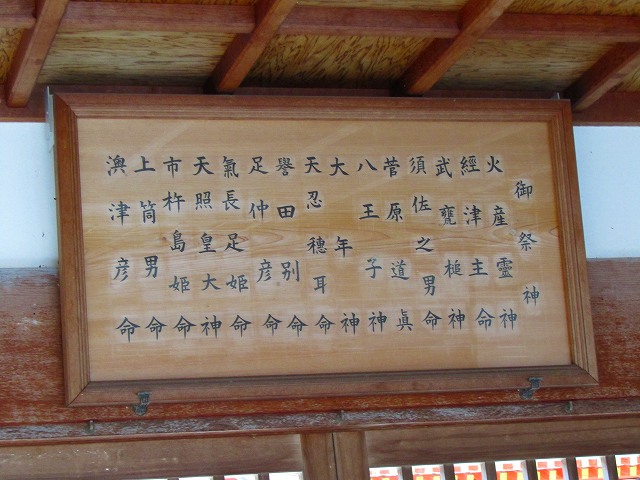 御祭神
火産霊神
經津主命
武甕槌神
須佐之男命
菅原道眞
八王子神
大年神
天忍穗耳命
譽田別命
足仲彦命
氣長足姫命
天照皇大神
市杵島姫命
上筒男命
澳津彦命